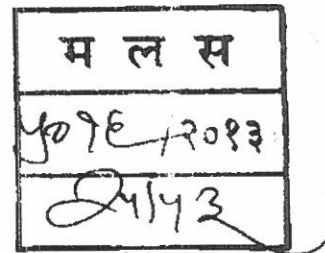 म ल स
५०१६/२०१३
२५/५३